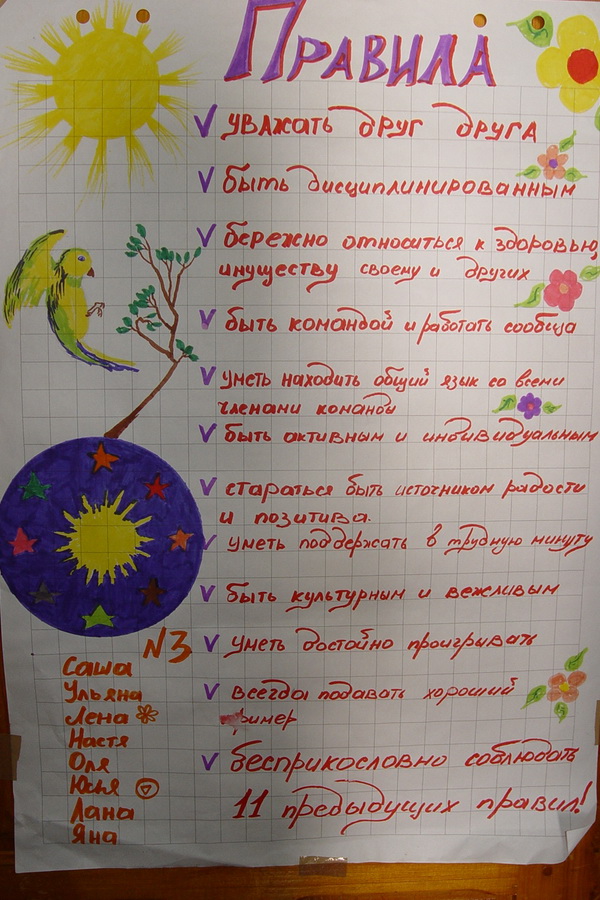 Правила
уважать друг друга
быть дисциплинированным
бережно относиться к здоровью,
имуществу своему и других
быть командой и работать сообща
уметь находить общий язык со всеми
членами команды
быть активным и индивидуальным
стараться быть источником радости
и позитива.
уметь поддержать в трудную минуту
быть культурным и вежливым
уметь достойно проигрывать
всегда подавать хороший
пример
бесприкословно соблюдать
11 предыдущих правил!
№3
Саша
Ульяна
Лена
Настя
Оля
Юля
Лана
Яна